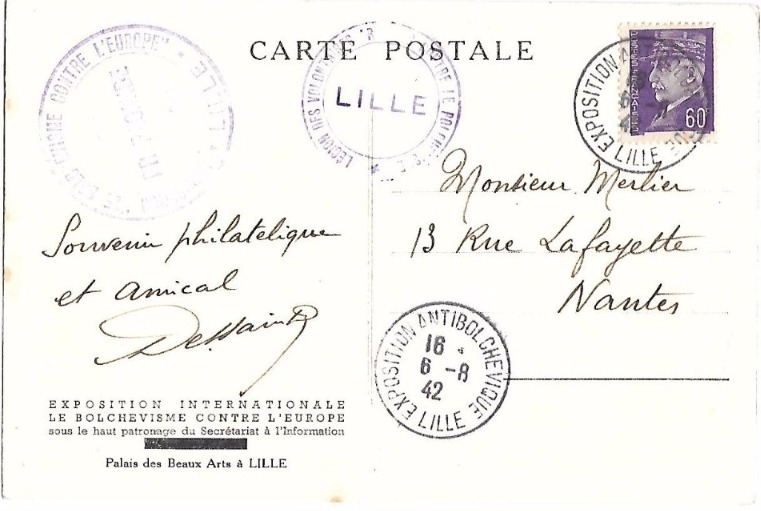 CARTE POSTALE
CONTRE L'EUROPE"
LÉGION DES VOLONTAIRES
LILLE
60
EXPOSITION
LILLE
Monsieur Merlier
13 Rue Lafayette
Nantes
Souvenir philatélique
et amical
EXPOSITION ANTIBOLCHEVIQUE
16
6 - 8
42
LILLE
EXPOSITION INTERNATIONALE
LE BOLCHEVISME CONTRE L'EUROPE
sous le haut patronage du Secrétariat à l'Information
Palais des Beaux Arts à LILLE